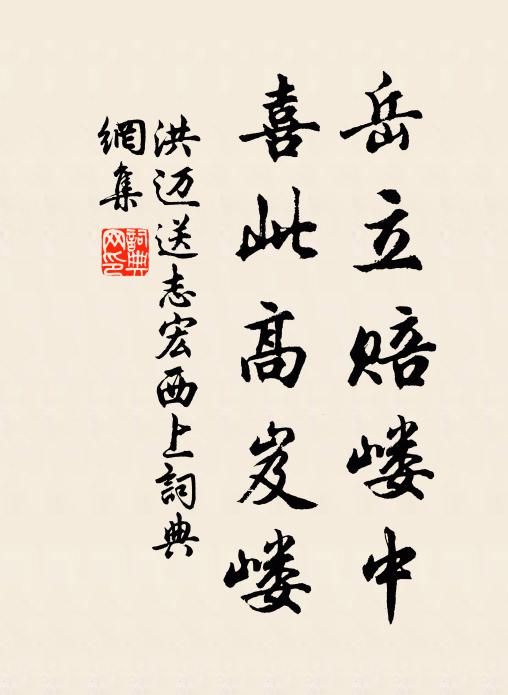 岳立赔嵝中
喜此高岌嵝
洪迈送志宏西上詞典
網集
詞典
网印